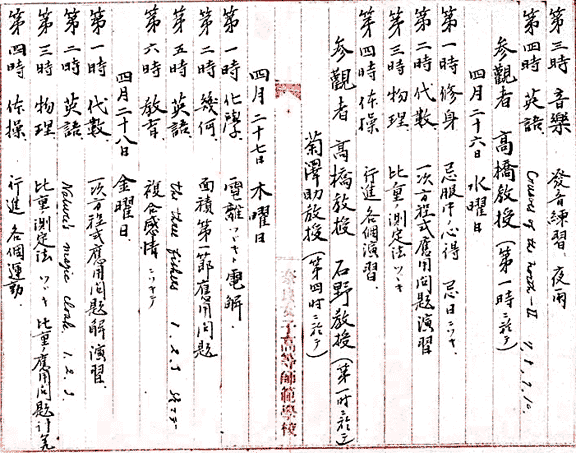 第三時 音樂 發音練習、夜雨
第四時 英語 Crusoe of the north—II 7, 8, 9, 10
参觀者 高橋教授(第一時ニ於テ)
四月二十六日 水曜日
第一時 修身 忌服中ノ心得 忌日ニツキ、
第二時 代數 一次方程式應用問題演習
第三時 物理 比重ノ測定法ツヾキ
第四時 体操 行進 各個演習、
参觀者 高橋教授 石野教授(第一時ニ於テ)
菊澤助教授(第四時ニ於テ)
奈良女子高等師範學校
四月二十七日 木曜日
第一時 化學、電離ツヾキ 電解、
第二時 幾何、面積第一節應用問題
第五時 英語 the three fishers 1, 2, 3
第六時 教育、複合感情ニツキテ
四月二十八日 金曜日
第一時 代數、一次方程式應用問題解演習、
第二時 英語、Nature's magic cloak, 1, 2, 3
第三時 物理、比重ノ測定法ツヾキ 比重應用問題計算
第四時 体操、行進 各個運動、